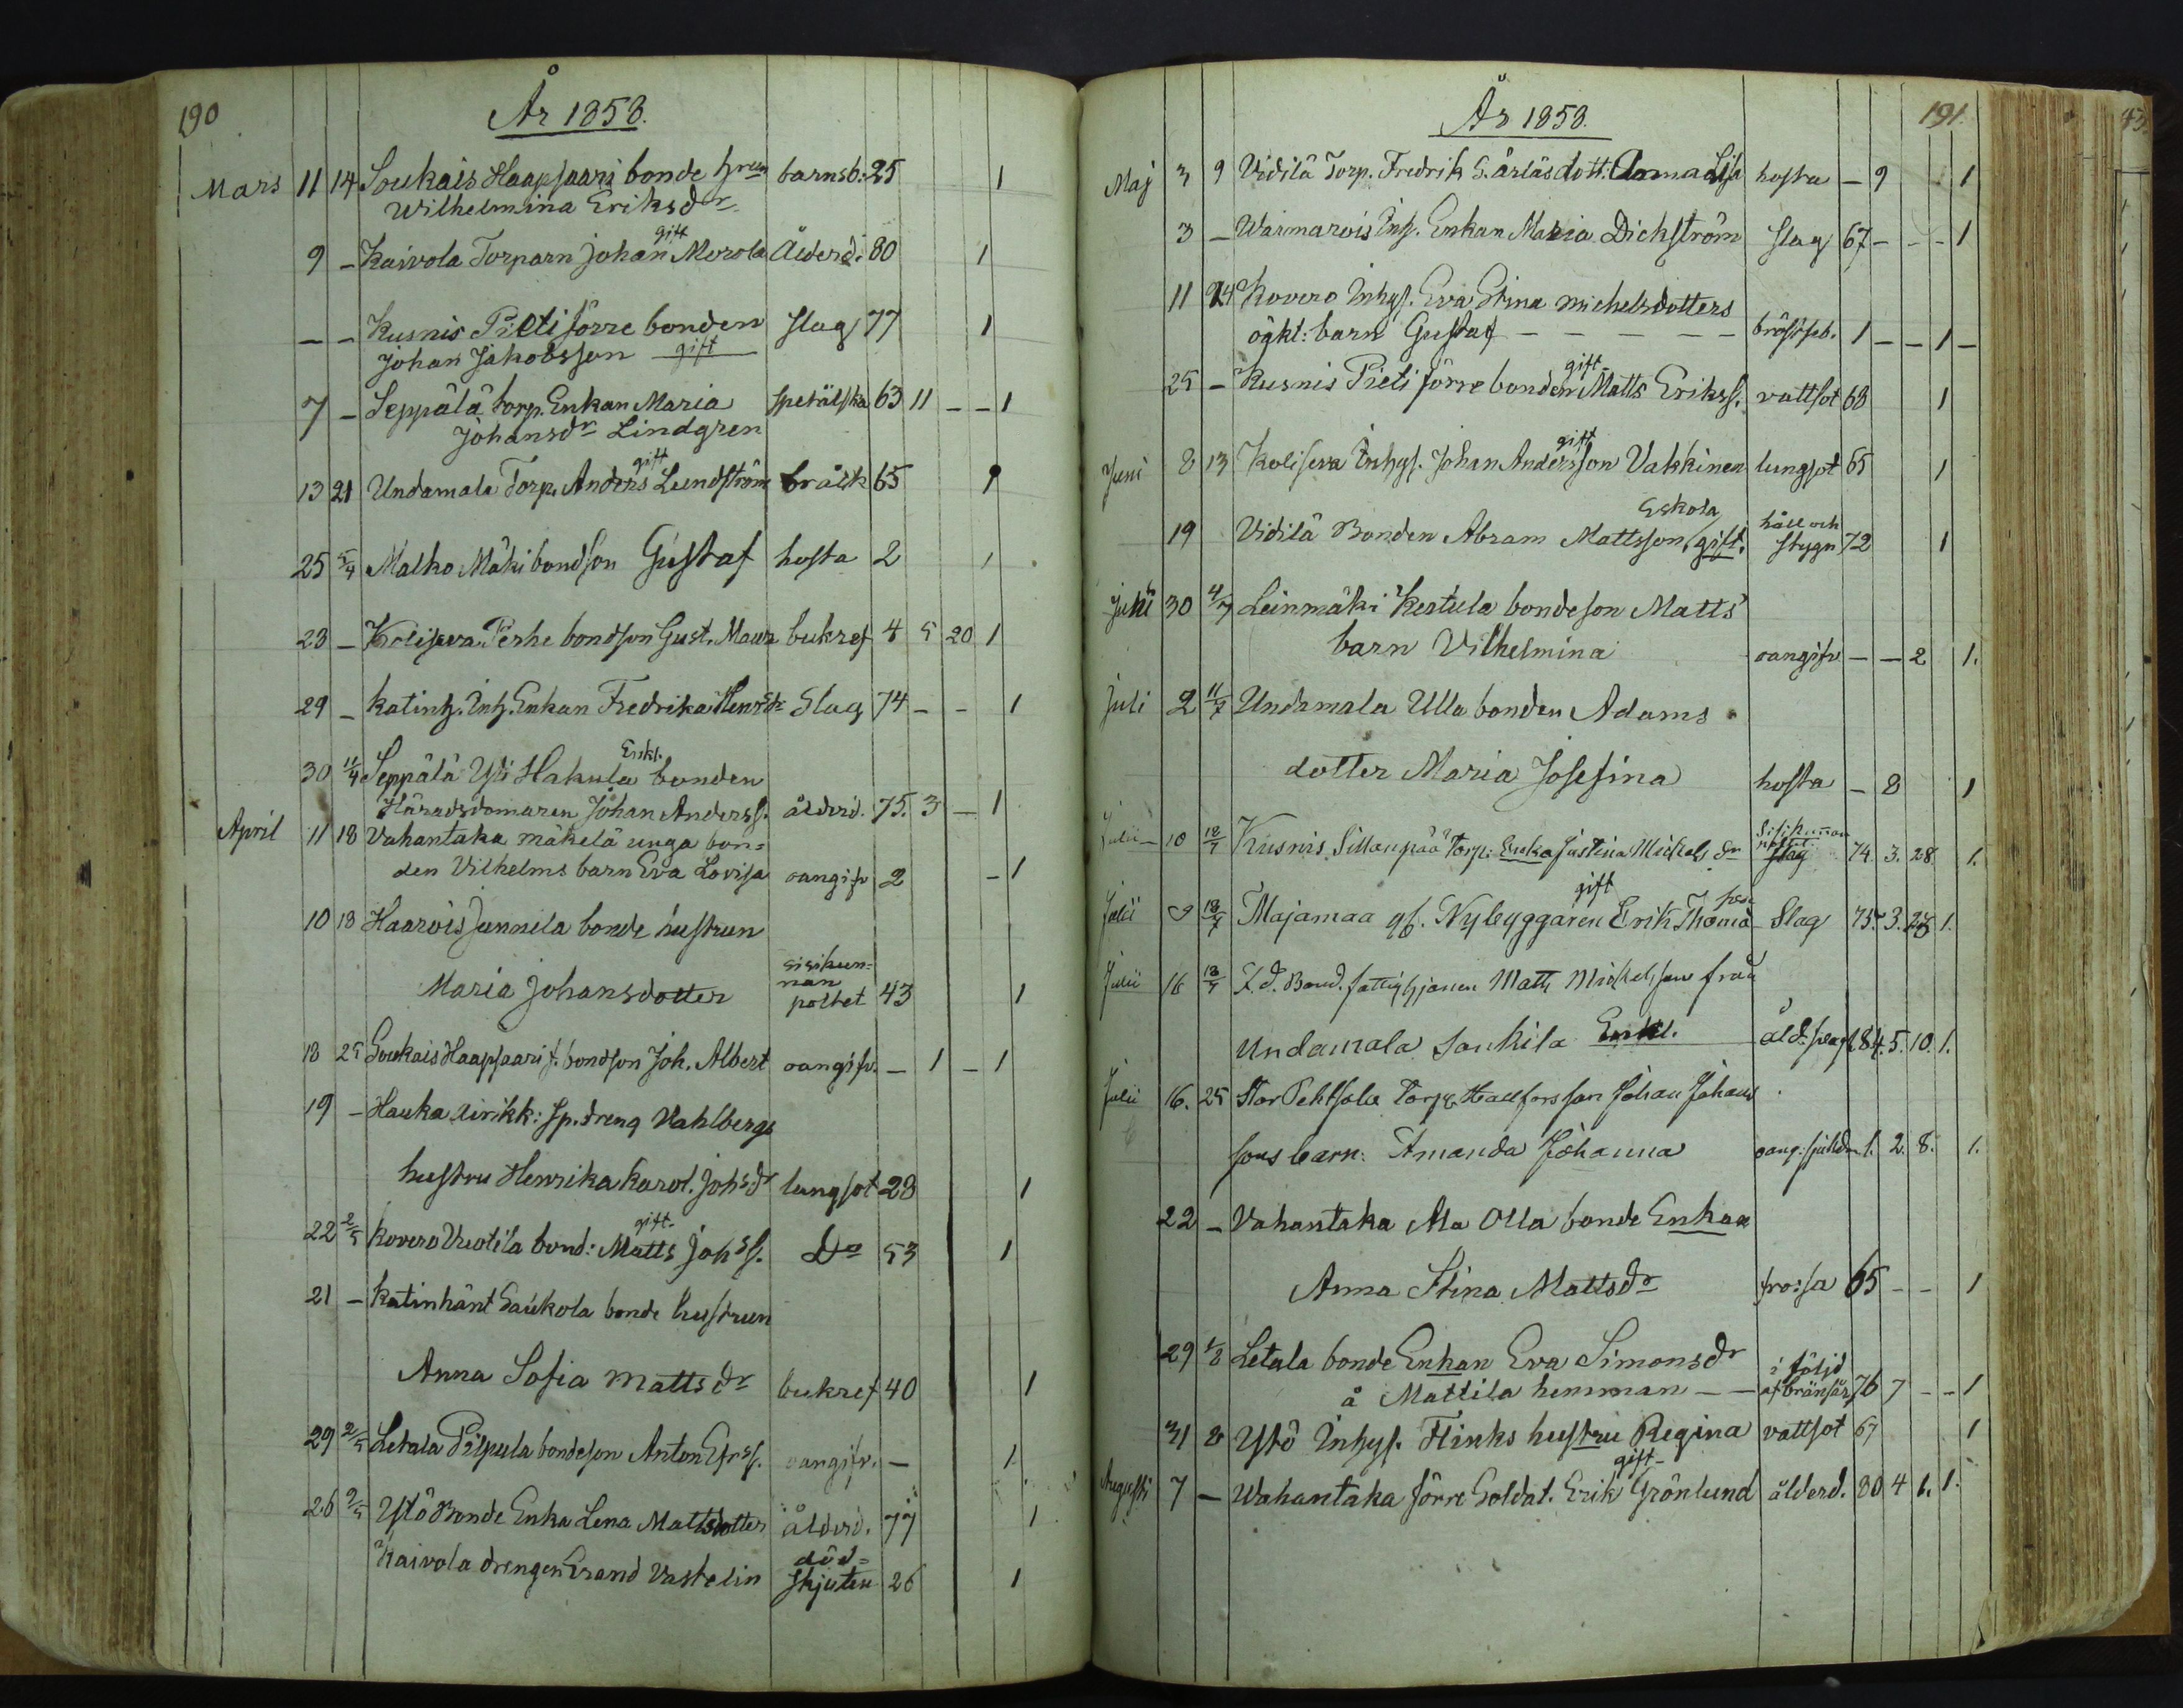 190
År 1858.
Mars 11 14 Soukais Haapsaari bonde hrun barnsb: 25 1
Wilhelmina Eriksdr
gift
9 – Kaivola Torparn Johan Morola Ålderd: 80 1
– – Kusnis Pieti förre bonden slag 77 1
Johan Jakobsson gift
7 – Seppälä torp. Enkan Maria spetälska 63 11 – – 1
Johansdr Lindgren
gift
13 21 Undamala Torp. Anders Lundström bråck 65 1
25 5/4 Malko Mäki bondson Gustaf hosta 2 1
23 – Koliseva Perhe bondson Gust. Maur bukref 4 5 20 1
29 – Katinh. Inh. Enkan Fredrika Henrsdr Slag 74 – – 1
Enkl.
30 11/4 Seppälä Yli Hakula bonden
Häradsdomaren Johan Anderss. ålderd. 75. 3 – 1
April 11 18 Vahantaka mäkelä unga bon=
den Vilhelms barn Eva Lovisa oangifv 2 – 1
10 18 Haarois Junnila bonde hustrun
sisikun=
nan
Maria Johansdotter poltet 43 1
18 25 Soukais Haapsaari f. bondson Joh. Albert oangifv. – 1 – 1
19 – Hauka Airikk: sp. dreng Vahlbergs
hustru Henrika Karol. Johsdr lungsot 28 1
gift
22 2/5 Kovero Uotila bond: Matts Johss. Do 53 1
21 – Katinhänt Saukola bonde hustrun
Anna Sofia Mattsdr bukref 40 1
29 2/5 Letala Pilpula bondeson Anton Efrss. oangifv. – 1
26 2/5 Ylö Bonde Enka Lena Mattsdotter ålderd. 77 1
död=
Kaivola drengen Erand Vastelin skjuten 26 1
År 1858.
191.
Maj 3 9 Vidilä Torp. Fredrik S. ärläs dott: Anna Lisa hosta – 9 1
3 – Warmarois Inh. Enkan Maria Dickström slag 67 – – – 1
11 24 Kovero Inhys. Eva Stina Michelsdotters
oäkt: barn Gustaf – – – – – bröstfeb. 1 – – 1 –
gift
25 – Kusnis Pieti förre bonden Matts Erikss. vattsot 68 1
gift
Juni 8 13 Koliseva Inhys. Johan Andersson Vakkinen lungsot 65 1
Eskola håll och
19 Vidilä Bonden Abram Mattsson, gift. stygn 72 1
Juni 30 4/7 Leinmäki Kestula bondeson Matts
barn Vilhelmina oangifv – – 2 1.
Juli 2 11/7 Undamala Ulla bonden Adams
dotter Maria Josefina hosta – 8 1
Julii 10 18/7 Kusnis Sillanpää Torp: Enka Justina Mickelsdr slag 74 3. 28 1.
gift
Julii 9 18/7 Majamaa gf. Nybyggaren Erik Thoma Slag 75. 3. 28 1.
Julii 16 18/7 F. d. Bond. fattighjonen Matts Mickelsson från
Undamala Junkila Enkl. åld: svagh 84. 5. 10. 1.
Julii 16. 25 Stor Pehtsalo Torp. Hallforssan Johan Johans
sons barn: Amanda Johanna oang: sjukdm 1. 2. 8. 1.
22 – Vahantaka Ala Olla bonde Enkan
Anna Stina Mattsdr frossa 65 – – 1
29 1/8 Letala bonde Enkan Eva Simonsdr i följd
å Mattila hemman – – af bränsår 76 7 – – 1
31 8 Ylö Inhys. Flinks hustru Regina vattsot 67 1
gift
Augusti 7 – Wahantaka förre Soldat. Erik Grönlund ålderd. 80 4 1. 1.